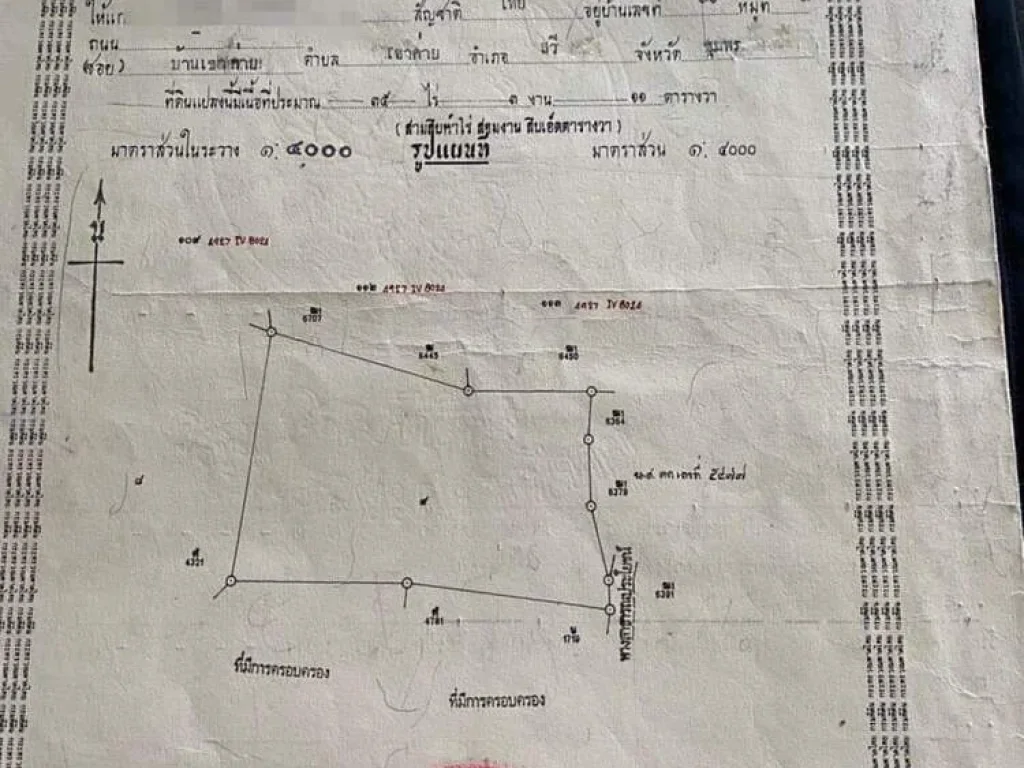 ให้แก่ สัญชาติ ไทย อยู่บ้านเลขที่ หมู่ที่
ถนน
(ซอย) บ้านเขาค่าย ตำบล เขาค่าย อำเภอ สวี จังหวัด ชุมพร
ที่ดินแปลงนี้มีเนื้อที่ประมาณ ๓๕ ไร่ ๓ งาน ๑๑ ตารางวา
( สามสิบห้าไร่ สามงาน สิบเอ็ดตารางวา )
มาตราส่วนในระวาง ๑: ๔๐๐๐ รูปแผนที่ มาตราส่วน ๑: ๔๐๐๐
น
๑๐๙ 4727 IV 8022
๑๑๒ 4727 IV 8022
๑๑๓ 4727 IV 8022
6707
6445
6450
6364
น.ส. ๓ก เลขที่ ๕๔๗๗
6379
๘
๙
4321
6391
4781
ที่มีการครอบครอง
ทางสาธารณประโยชน์
ที่มีการครอบครอง